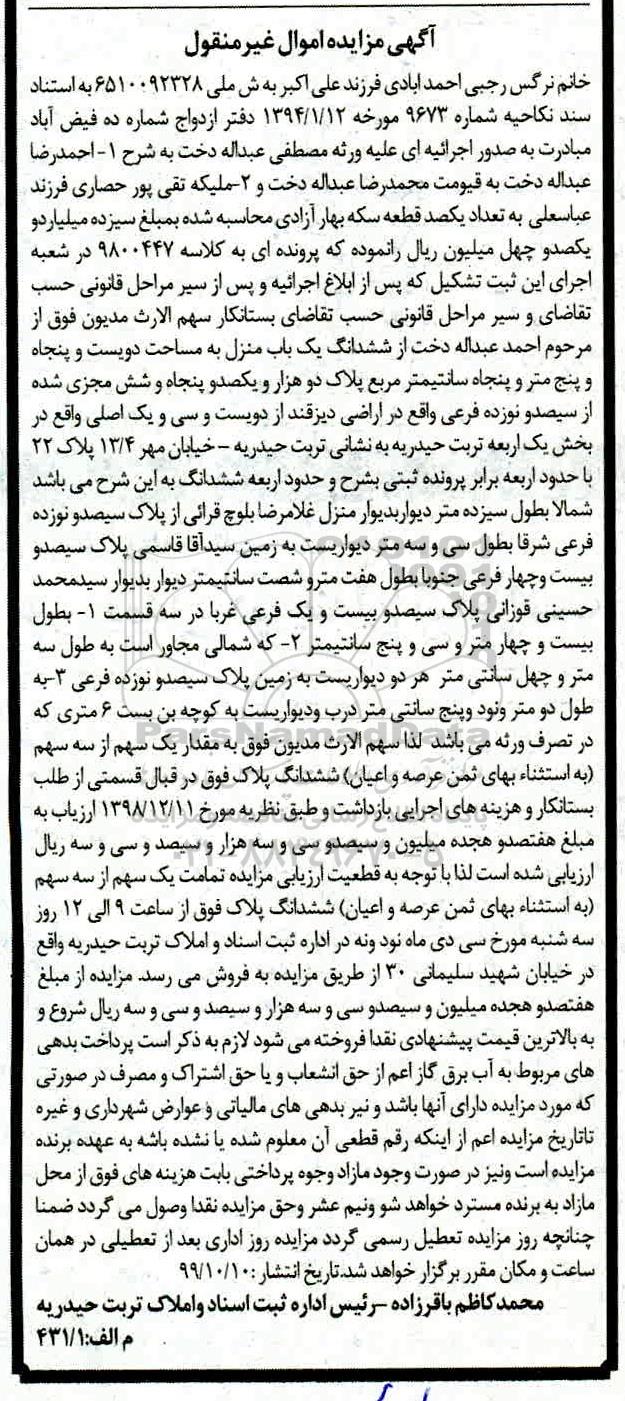 آگهی مزایده اموال غیر منقول
خانم نرگس رجبی احمد ابادی فرزند علی اکبر به ش ملی ۶۵۱۰۰۹۲۳۲۸ به استناد
سند نکاحیه شماره ۹۶۷۳ مورخه ۱۳۹۴/۱/۱۲ دفتر ازدواج شماره ده فیض آباد
مبادرت به صدور اجرائیه ای علیه ورثه مصطفی عبداله دخت به شرح ۱- احمدرضا
عبداله دخت به قیومت محمدرضا عبداله دخت و ۲-ملیکه تقی پور حصاری فرزند
عباسعلی به تعداد یکصد قطعه سکه بهار آزادی محاسبه شده بمبلغ سیزده میلیاردو
یکصدو چهل میلیون ریال رانموده که پرونده ای به کلاسه ۹۸۰۰۴۴۷ در شعبه
اجرای این ثبت تشکیل که پس از ابلاغ اجرائیه و پس از سیر مراحل قانونی حسب
تقاضای و سیر مراحل قانونی حسب تقاضای بستانکار سهم الارث مدیون فوق از
مرحوم احمد عبداله دخت از ششدانگ یک باب منزل به مساحت دویست و پنجاه
و پنج متر و پنجاه سانتیمتر مربع پلاک دو هزار و یکصدو پنجاه و شش مجزی شده
از سیصدو نوزده فرعی واقع در اراضی دیزقند از دویست و سی و یک اصلی واقع در
بخش یک اربعه تربت حیدریه به نشانی تربت حیدریه – خیابان مهر ۱۳/۴ پلاک ۲۲
با حدود اربعه برابر پرونده ثبتی بشرح و حدود اربعه ششدانگ به این شرح می باشد
شمالا بطول سیزده متر دیواربدیوار منزل غلامرضا بلوچ قرائی از پلاک سیصدو نوزده
فرعی شرقا بطول سی و سه متر دیواریست به زمین سیدآقا قاسمی پلاک سیصدو
بیست وچهار فرعی جنوبا بطول هفت مترو شصت سانتیمتر دیوار بدیوار سیدمحمد
حسینی قوزانی پلاک سیصدو بیست و یک فرعی غربا در سه قسمت ۱- بطول
بیست و چهار متر و سی و پنج سانتیمتر ۲- که شمالی مجاور است به طول سه
متر و چهل سانتی متر هر دو دیواریست به زمین پلاک سیصدو نوزده فرعی ۳-به
طول دو متر ونود وپنج سانتی متر درب ودیواریست به کوچه بن بست ۶ متری که
در تصرف ورثه می باشد لذا سهم الارث مدیون فوق به مقدار یک سهم از سه سهم
(به استثناء بهای ثمن عرصه و اعیان) ششدانگ پلاک فوق در قبال قسمتی از طلب
بستانکار و هزینه های اجرایی بازداشت و طبق نظریه مورخ ۱۳۹۸/۱۲/۱۱ ارزیاب به
مبلغ هفتصدو هجده میلیون و سیصدو سی و سه هزار و سیصد و سی و سه ریال
ارزیابی شده است لذا با توجه به قطعیت ارزیابی مزایده تمامت یک سهم از سه سهم
(به استثناء بهای ثمن عرصه و اعیان) ششدانگ پلاک فوق از ساعت ۹ الی ۱۲ روز
سه شنبه مورخ سی دی ماه نود ونه در اداره ثبت اسناد و املاک تربت حیدریه واقع
در خیابان شهید سلیمانی ۳۰ از طریق مزایده به فروش می رسد. مزایده از مبلغ
هفتصدو هجده میلیون و سیصدو سی و سه هزار و سیصد و سی و سه ریال شروع و
به بالاترین قیمت پیشنهادی نقدا فروخته می شود لازم به ذکر است پرداخت بدهی
های مربوط به آب برق گاز اعم از حق انشعاب و یا حق اشتراک و مصرف در صورتی
که مورد مزایده دارای آنها باشد و نیر بدهی های مالیاتی و عوارض شهرداری و غیره
تاتاریخ مزایده اعم از اینکه رقم قطعی آن معلوم شده یا نشده باشه به عهده برنده
مزایده است ونیز در صورت وجود مازاد وجوه پرداختی بابت هزینه های فوق از محل
مازاد به برنده مسترد خواهد شو ونیم عشر وحق مزایده نقدا وصول می گردد ضمنا
چنانچه روز مزایده تعطیل رسمی گردد مزایده روز اداری بعد از تعطیلی در همان
ساعت و مکان مقرر برگزار خواهد شد.تاریخ انتشار :۹۹/۱۰/۱۰
محمد کاظم باقرزاده –رئیس اداره ثبت اسناد واملاک تربت حیدریه
م الف:۴۳۱/۱
ParsNamadData
۰۲۱-۸۸۳۴۹۶۷۰-۵